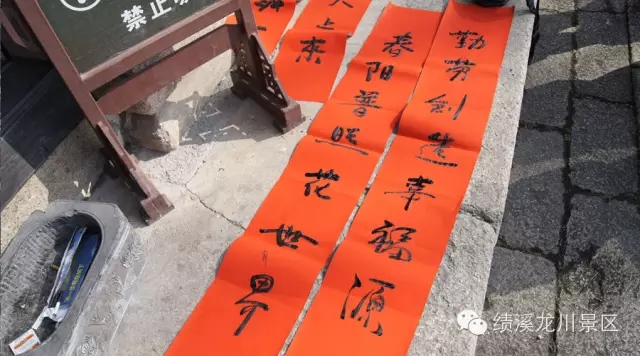 禁止
勤劳创造幸福源
春阳普照花世界
上来
绩溪龙川景区